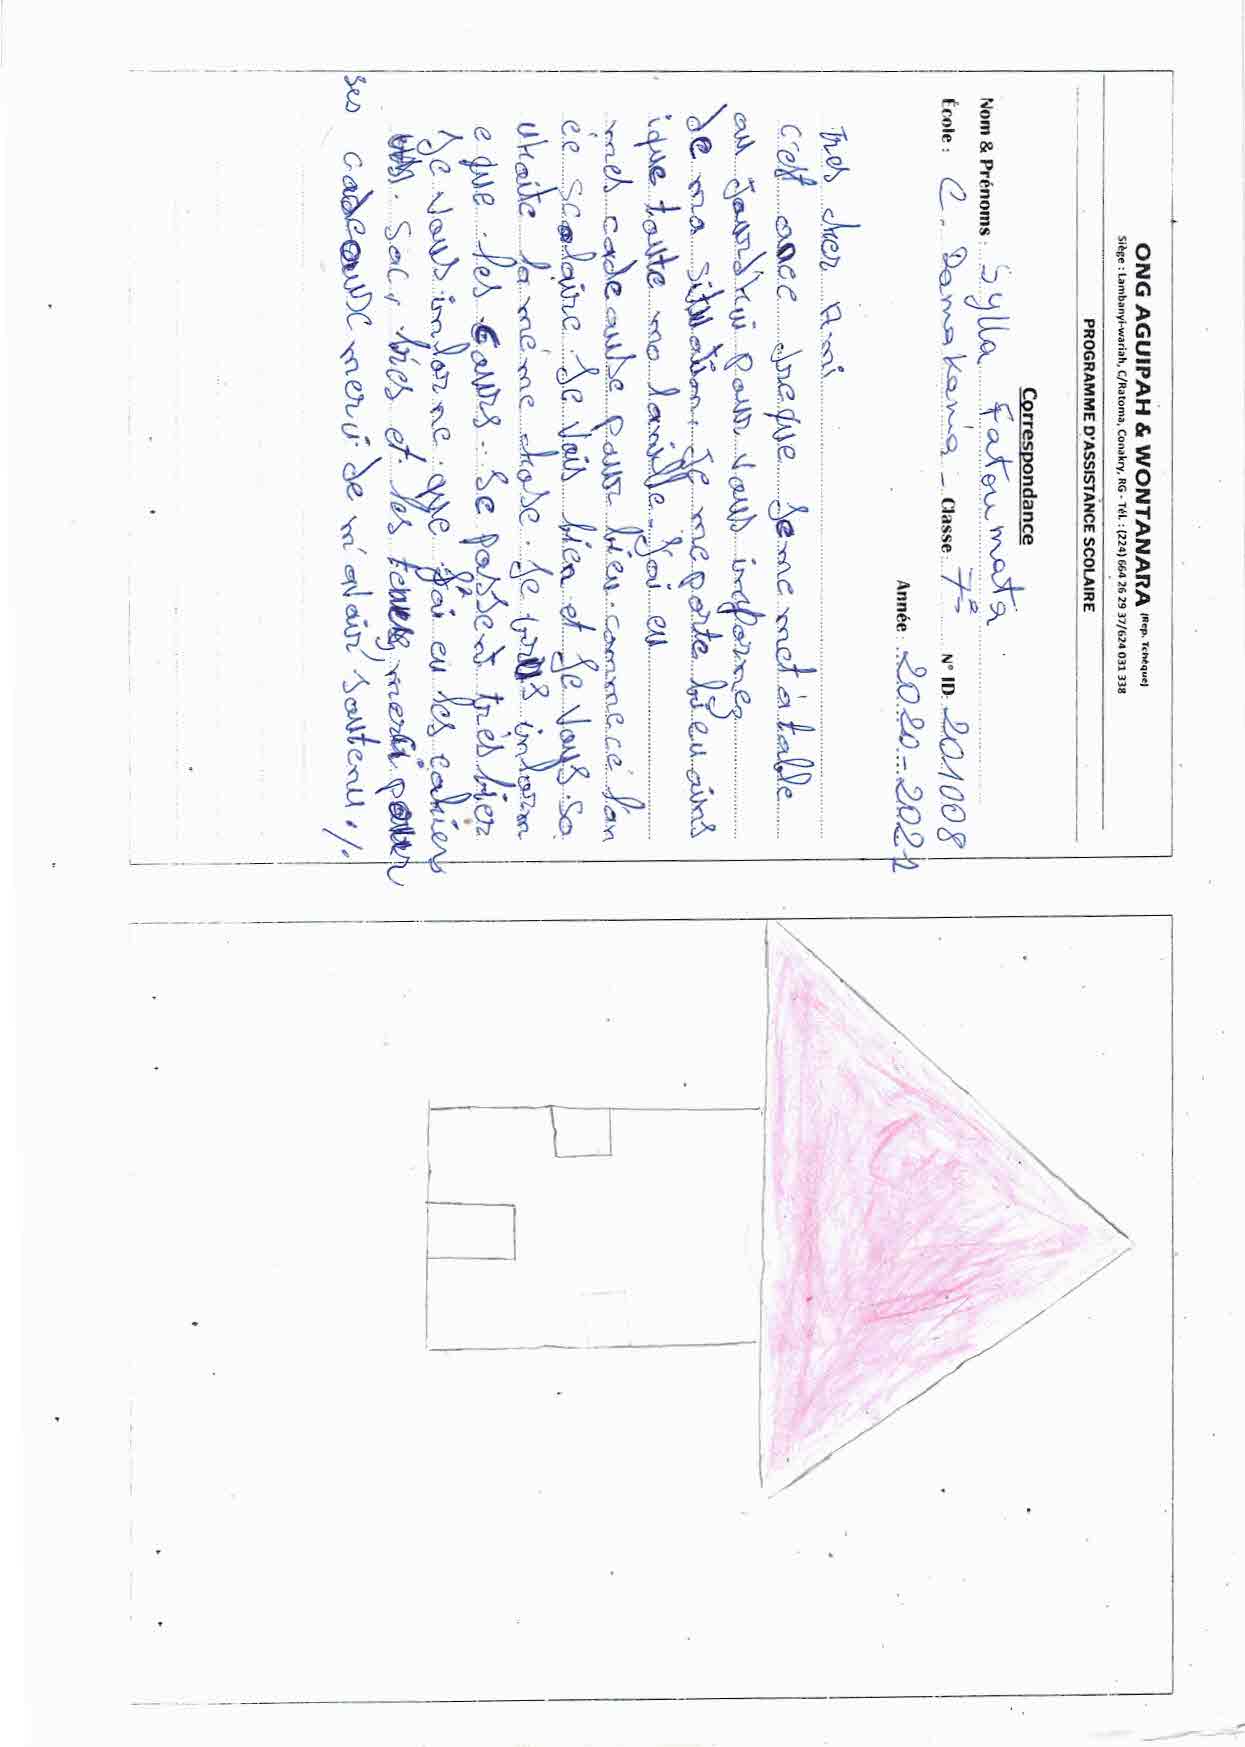 ONG AGUIPAH & WONTANARA (Rep. Tchèque)
Siège : Lambanyi-wariah, C/Ratoma, Conakry, RG - Tél. : (224) 664 26 29 37/624 031 338
PROGRAMME D'ASSISTANCE SCOLAIRE
Correspondance
Nom & Prénoms : Sylla Fatoumata
École : C. Damakania - Classe : 7è N° ID 201008
Année : 2020-2021
Très cher Ami
c'est avec que je me met à table
au jourd'hui pour vous informez
de ma situation, je me porte bien ains
ique toute ma famille. J'ai eu
mes cadeause pour bien commecé l'an
ée scolaire. Je vais bien et je vous so
uhaite la même chose. Je vous inform
e que les cours se passent très bien
Je vous informe que j'ai eu les cahiers
sac, bics et les tenues, merci pour
ses cadeause merci de m'avoir soutenu ./.